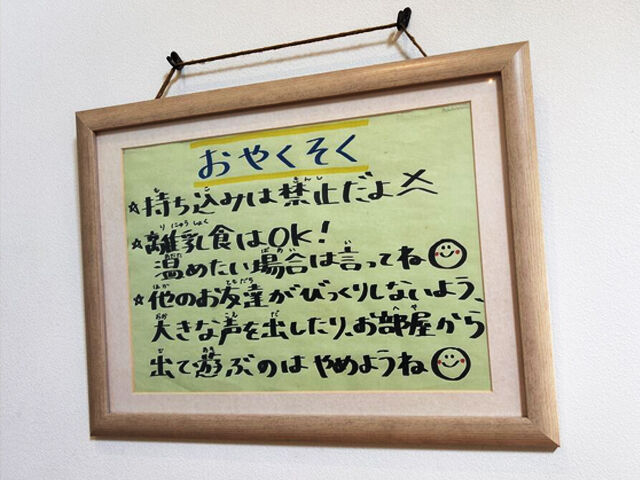 おやくそく
☆持ち込みは禁止だよ
☆離乳食はOK!
温めたい場合は言ってね
☆他のお友達がびっくりしないよう、
大きな声を出したり、お部屋から
出て遊ぶのはやめようね